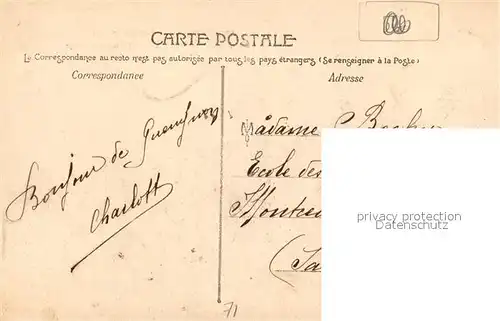 CARTE POSTALE
La Correspondance au recto n'est pas autorisée par tous les pays étrangers (Se renseigner à la Poste)
Correspondance
Adresse
Bonjour de
Charlott
Madame
Ecole des
(Sa
privacy protection
Datenschutz
71